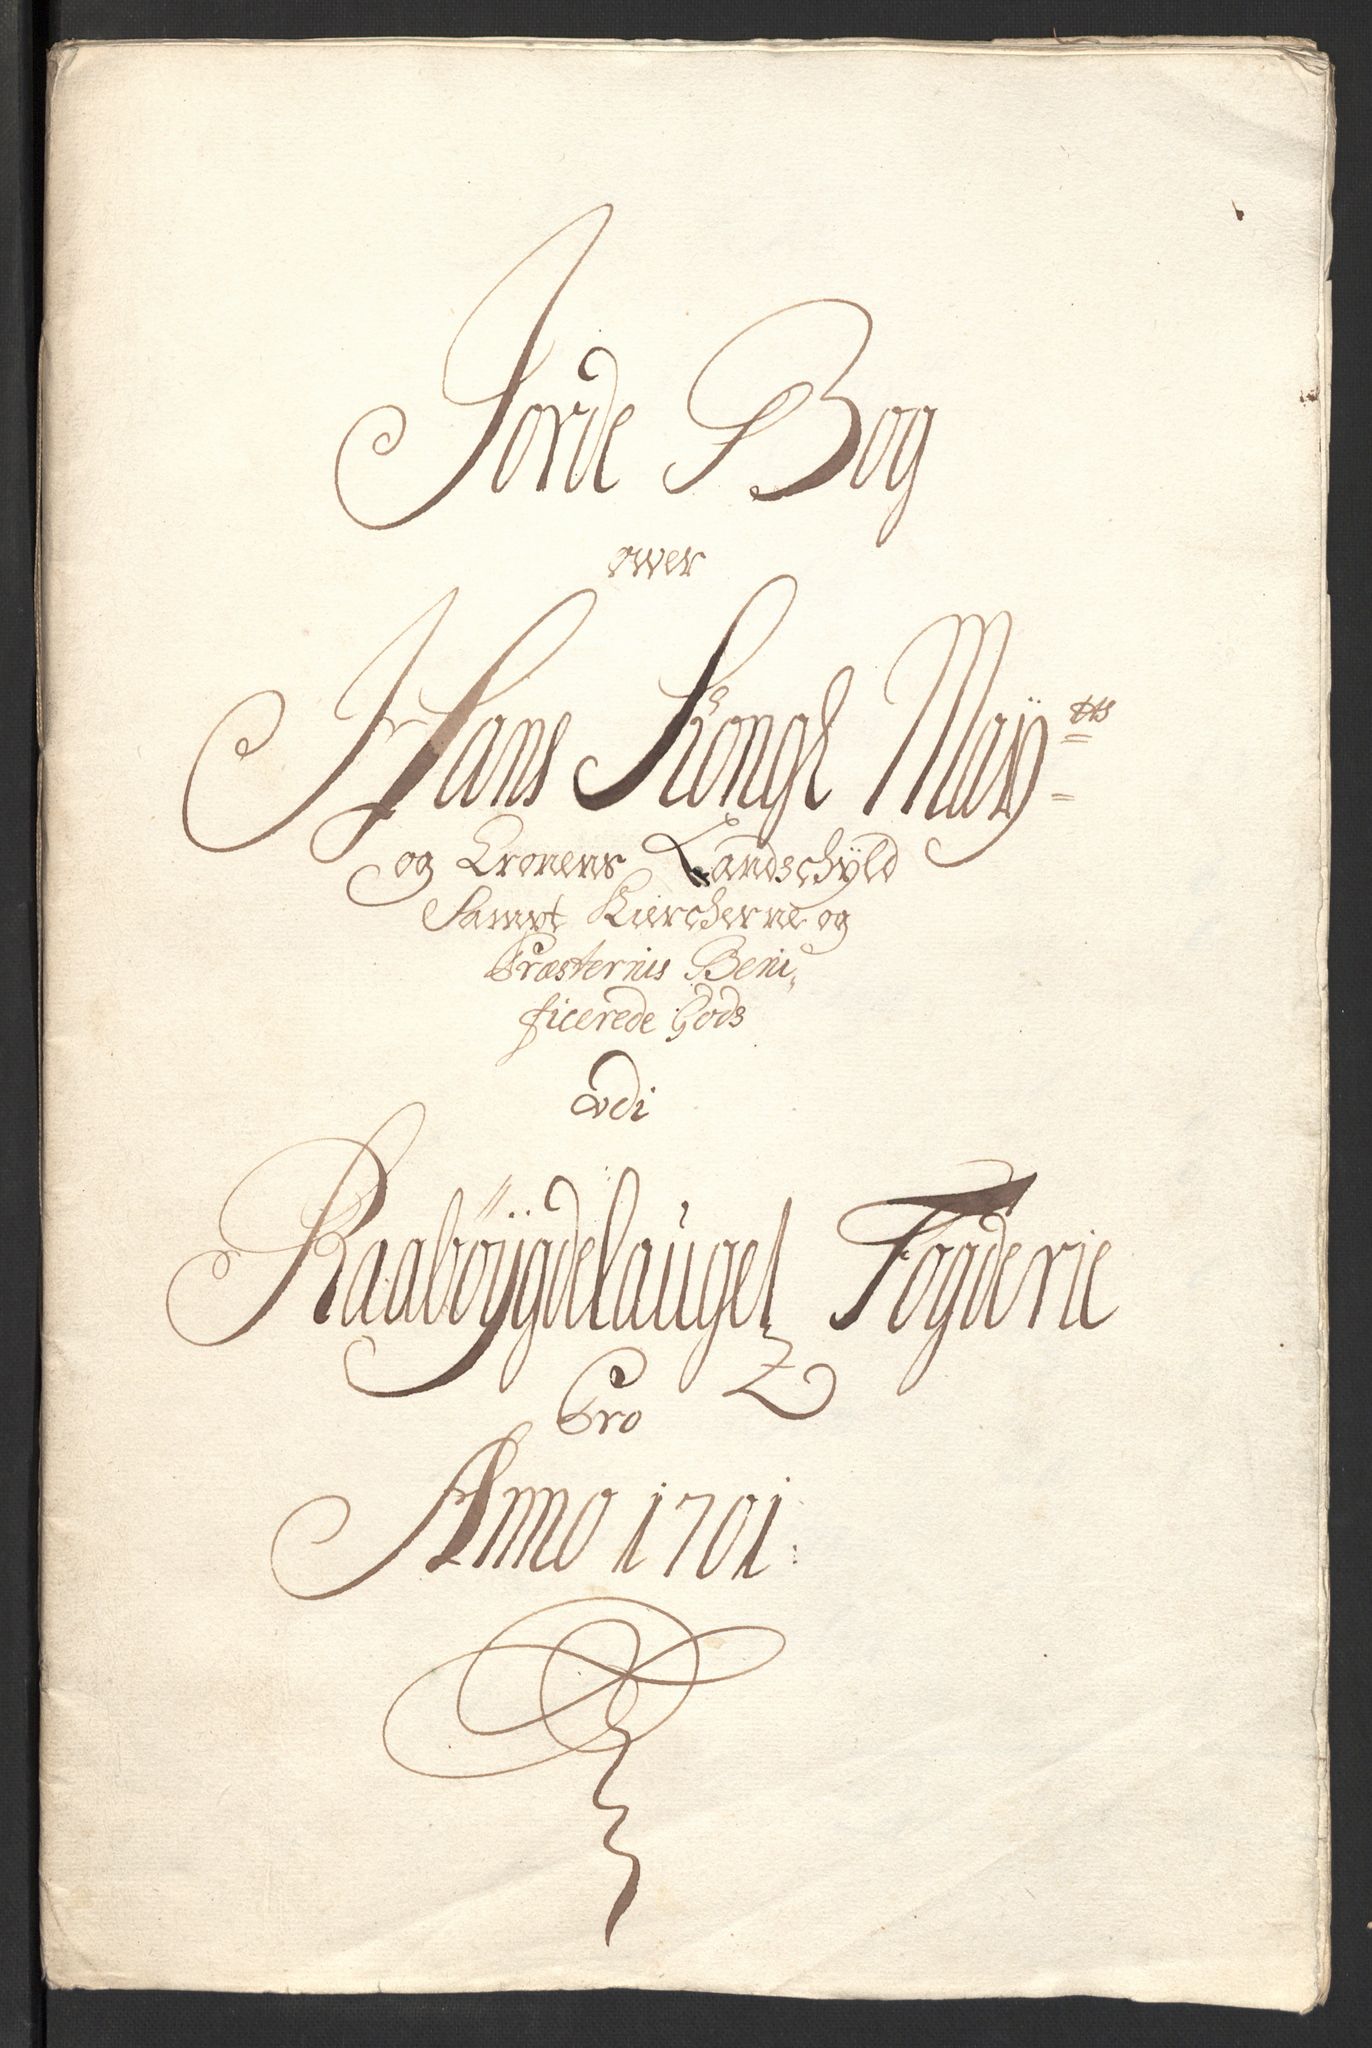 Jorde Bog
over
Hans Kongl Mayᵗᵗˢ
og Cronens Landschÿld
Sampt Kiercherne og
Præsternis Beni-
ficerede Gods
udi
Raaböÿgdelauget Fogderie
Pro
Anno 1701: